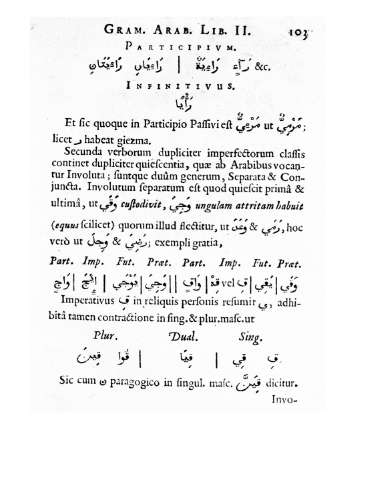 GRAM. ARAB. LIB. II. 103
PARTICIPIVM.
رَآءٍ رَاءِيَةٌ | رَاءِيَانِ رَاءِيَتَانِ &c.
INFINITIVUS.
Et sic quoque in Participio Passivi est مَرْمِيٌّ ut مَرْمِيٌّ;
licet ر habeat giezma.
Secunda verborum dupliciter imperfectorum classis
continet dupliciter quiescentia, quæ ab Arabibus vocan-
tur Involuta; suntque duûm generum, Separata & Con-
juncta. Involutum separatum est quod quiescit primâ &
ultimâ, ut وَقَي custodivit, وَجِيَ ungulam attritam habuit
(equus scilicet) quorum illud flectitur, ut رَمَي & وَعَدَ, hoc
verò ut وَجِلَ & رَضِيَ; exempli gratia,
Part. Imp. Fut. Præt. Part. Imp. Fut. Præt.
وَقَي | يَقِي | قِ vel قِهْ | وَاقٍ || وَجِيَ | يَوْجَي | اِيجَ | وَاجٍ
Imperativus قِ in reliquis personis resumit ي, adhi-
bitâ tamen contractione in sing. & plur. masc. ut
Plur. Dual. Sing.
قِ قِي | قِيَا | قُوا قِينَ
Sic cum ن paragogico in singul. masc. قِيَنَّ dicitur.
Invo-